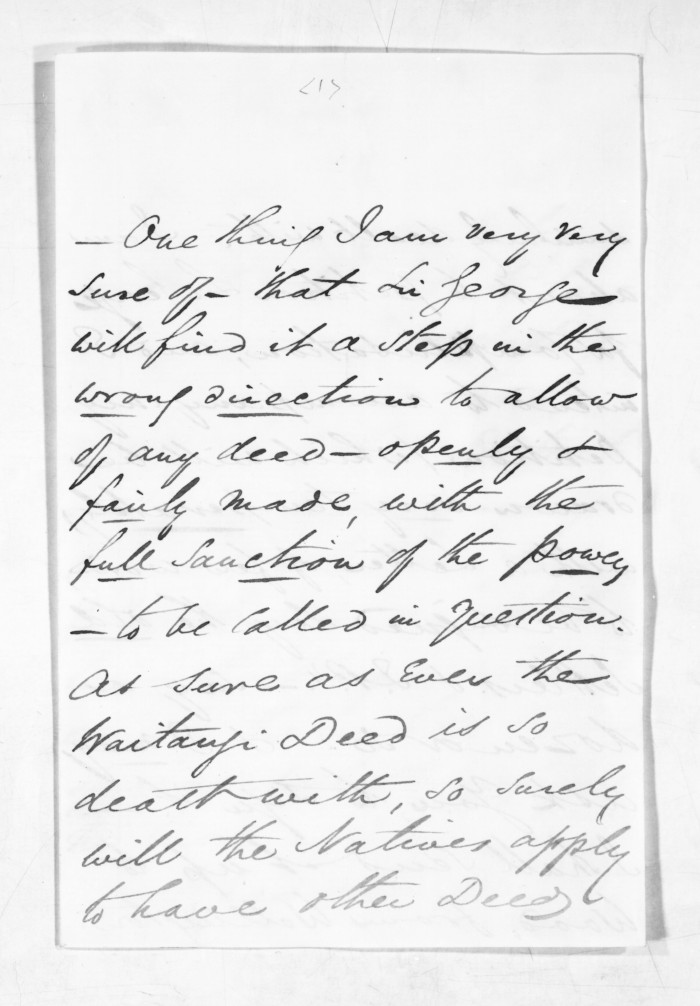 (1)
— One thing I am very very
sure of — that Sir George
will find it a step in the
wrong direction to allow
of any deed — openly &
fairly made, with the
full sanction of the powers
— to be called in question.
As sure as Ever the
Waitangi Deed is so
dealt with, so surely
will the Natives apply
to have other Deeds